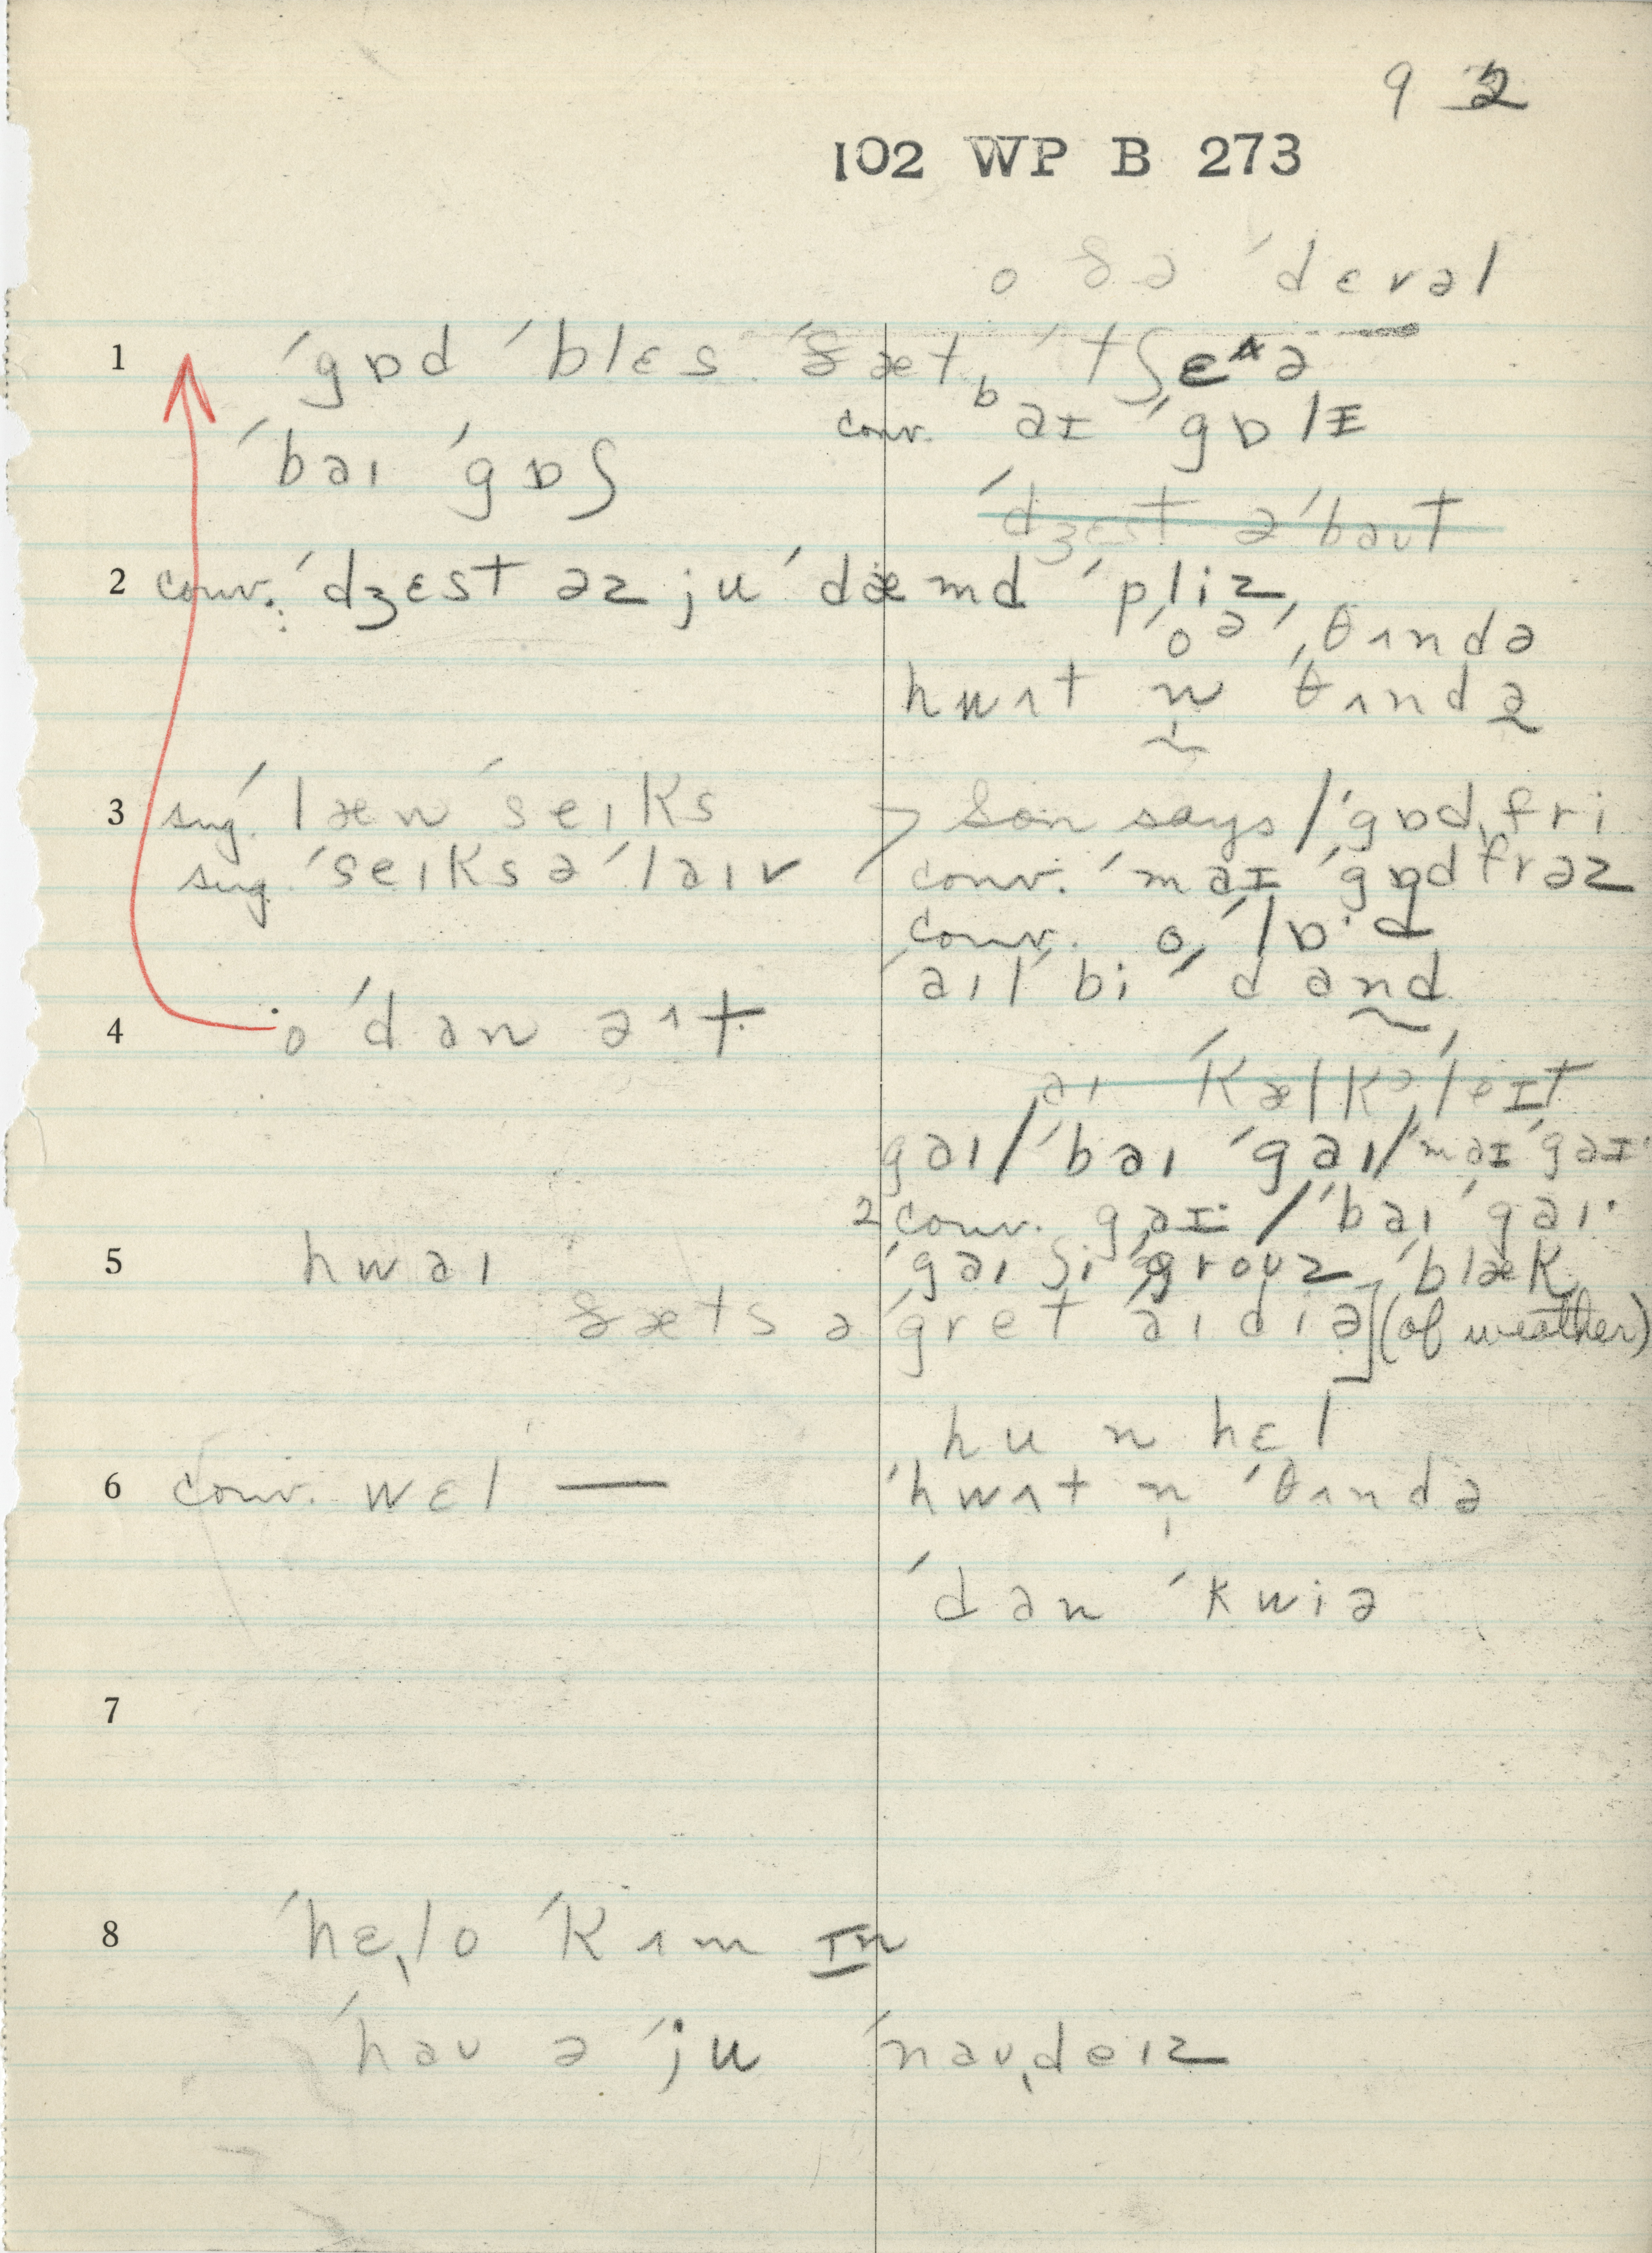 9 2
102 WP B 273
o ðə ˈdɛvəl
1 ˈgɒd ˈblɛs ˈðæt ˈtʃɛᴧə
conv. ˈbaɪ ˈgɒlɪ
ˈbaɪ ˈgɒʃ
ˈdʒɛst əˈbaut
2 conv. ˈdʒɛst əz ju ˈdæmd ˈpliz
o ə ˈθʌndə
hwʌt n̩ ˈθʌndə
3 sug. ˈlæn ˈseɪks > Son says / ˈgɒdˌfri
sug. ˈseɪks əˈlaɪv conv. ˈmaɪ ˈgɒdfrəz
conv. o ˈlɒ·d
ˈaɪl bi ˈdand
4 o ˈdan ɪt
aɪ ˈkælkəˌleɪt
gaɪ / ˈbaɪ ˈgaɪ / ˈmaɪ ˈgaɪ·
2 conv. gaɪ· / ˈbaɪ ˈgaɪ·
5 hwaɪ ˈgaɪ ʃi ˈgrouz ˈblæk
ðæts ə ˈgret aɪˈdiə] (of weather)
hu n hɛl
6 conv. wɛl — ˈhwʌt n̩ ˈθʌndə
ˈdan ˈkwiə
7
8 ˈhɛˌlo ˈkʌm ɪn
ˈhau ə ˈju ˈnauˌdeɪz